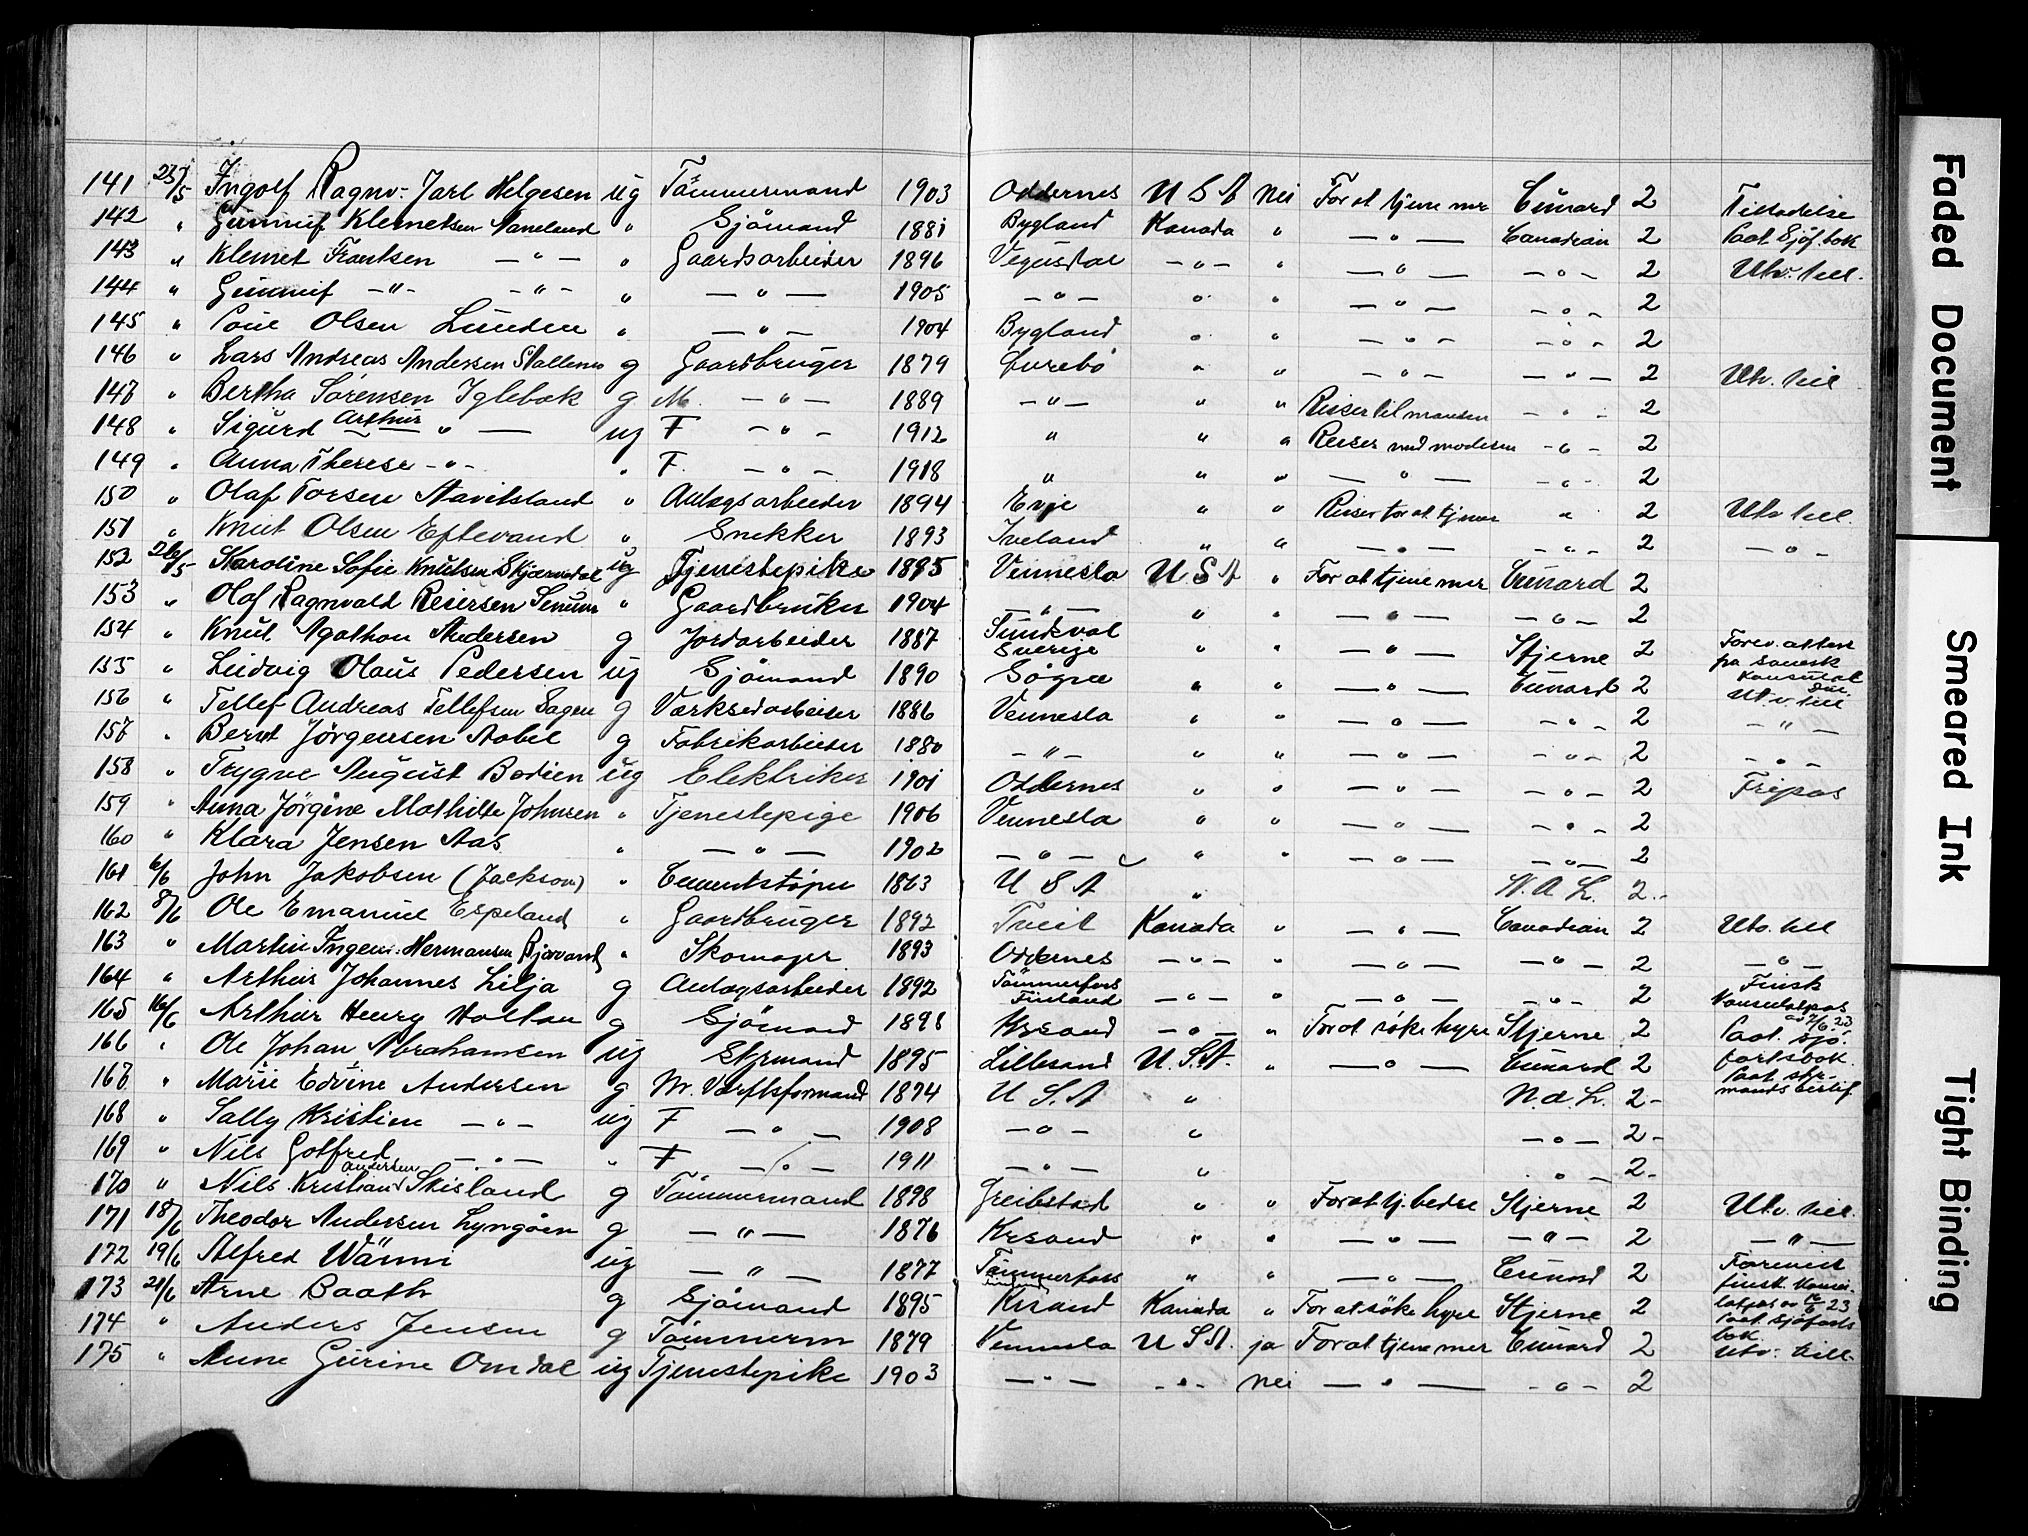 141 23/5 Ingolf Ragnv. Jarl Helgesen ug Tömmermand 1903 Oddernes U S A nei For at tjene mer Cunard 2 Tilladelse
142 " Gunnuf Klemetsen Naneland " Sjömand 1881 Bygland Kanada " — " — Canadian 2 Paat. Sjöf. bok
143 " Klemet Frantsen — " — " Gaardsarbeider 1896 Vegusdal — " — " — " — — " — 2 Utv. till.
144 " Gunnuf — " — — " — " — " — 1905 — " — " " — " — — " — 2
145 " Olsen Lunden " — " — 1904 Bygland " " — " — — " — 2
146 " Lars Andreas Andersen g Gaardbruger 1879 " " — " — — " — 2 Utv. till
147 " Bertha Sörensen Iglebæk g M. — " — 1889 — " — " " Reiser til manden — " — 2
148 " Sigurd Arthur " — ug F — " — 1912 " " " Reiser med moderen — " — 2
149 " Anna Therese — " — " F. — " — 1918 " " " — " — — " — 2
150 " Olaf Torsen " Anlægsarbeider 1894 Evje " " Reiser for at tjene " 2 Utv. till.
151 " Knut Olsen Eftevand " Snekker 1893 Iveland " " — " — — " — 2 — " —
152 26/5 Karoline Sofie Knutsen Skjærvedal ug Tjenestepike 1895 Vennesla U S A " For at tjene mer Cunard 2
153 " Olaf Ragnvald Reiersen Senum " Gaardbruker 1904 — " — " " — " — — " — 2
154 " Knut Agathon Andersen g Jordarbeider 1887 Sundsval Sverige " " — " — Stjerne 2 Forev. attest
på svensk Konsulat
155 " Ludvig Olaus Pedersen ug Sjömand 1890 Søgne " " — " — Cunard 2 Utv. till
156 " Tellef Andreas Tellefsen Dagen g Værkstedarbeider 1886 Vennesla " " — " — — " — 2 — " —
157 " Bernt Jörgensen Aabel g Fabrikarbeider 1880 — " — " " — " — — " — 2 — " —
158 " Trygve August Bodien ug Elektriker 1901 Oddernes " " — " — — " — 2 Fripas
159 " Anna Jörgine Mathilde Johnsen " Tjenestepige 1906 Vennesla " " — " — — " — 2
160 " Klara Jensen Aas " — " — 1902 — " — " " — " — — " — 2
161 6/6 John Jakobsen (Jackson) " Cementstöper 1863 U S A " N. A. L. 2.-
162 8/6 Ole Emanuel Espeland " Gaardbruger 1892 Tveit Kanada " — " — Canadian 2 Utv. till
163 " Martin Ingem. Hermansen Bjorvand " Skomager 1893 Oddernes — " — " — " — — " — 2 — " —
164 " Arthur Johannes Lilja g Anlægsarbeider 1892 Tömmerfors Finland — " — " — " — — " — 2 Finsk Konsulatpas
av 2/6.23
165 16/6 Arthur Henry Holtan g Sjömand 1898 Krsand — " — " For at söke hyre Stjerne 2 Paat. sjö-
fartsbok
166 " Ole Johan Abrahamsen ug Styrmand 1895 Lillesand U. S. A. " — " — Cunard 2 Paat. styr-
mands
167 " Marie Edvine Andersen g M. Værftsformand 1874 U S. A " N. A. L. 2-
168 " Sally Kristine — " — ug F — " — 1908 — " — " — " — 2-
169 " Nils Gotfred — " — " F — " — 1911 — " — " — " — 2-
170 " Nils Kristian Andersen Skisland g Tömmermand 1898 Greibstad " " For at tj. bedre Stjerne 2 Utv. till.
171 18/6 Theodor Andersen Lyngöen g — " — 1876 Krsand " " — " — — " — 2 — " —
172 19/6 Alfred Wänni ug — " — 1877 Tammerfors " " — " — Cunard 2 Forevist
finsk Konsu-
latpas av 23
173 21/6 Arne Baath g Sjömand 1895 Krsand Kanada " For at söke hyre Stjerne 2 Paat sjöfarts
bok
174 " Anders Jensen g Tömmerm 1879 Vennesla U S A. ja For at tjene mer Cunard 2 Utv. till.
175 " Anne Gurine Omdal ug Tjenestepike 1903 — " — — " — nei — " — — " — 2
Faded Document
Smeared Ink
Tight Binding